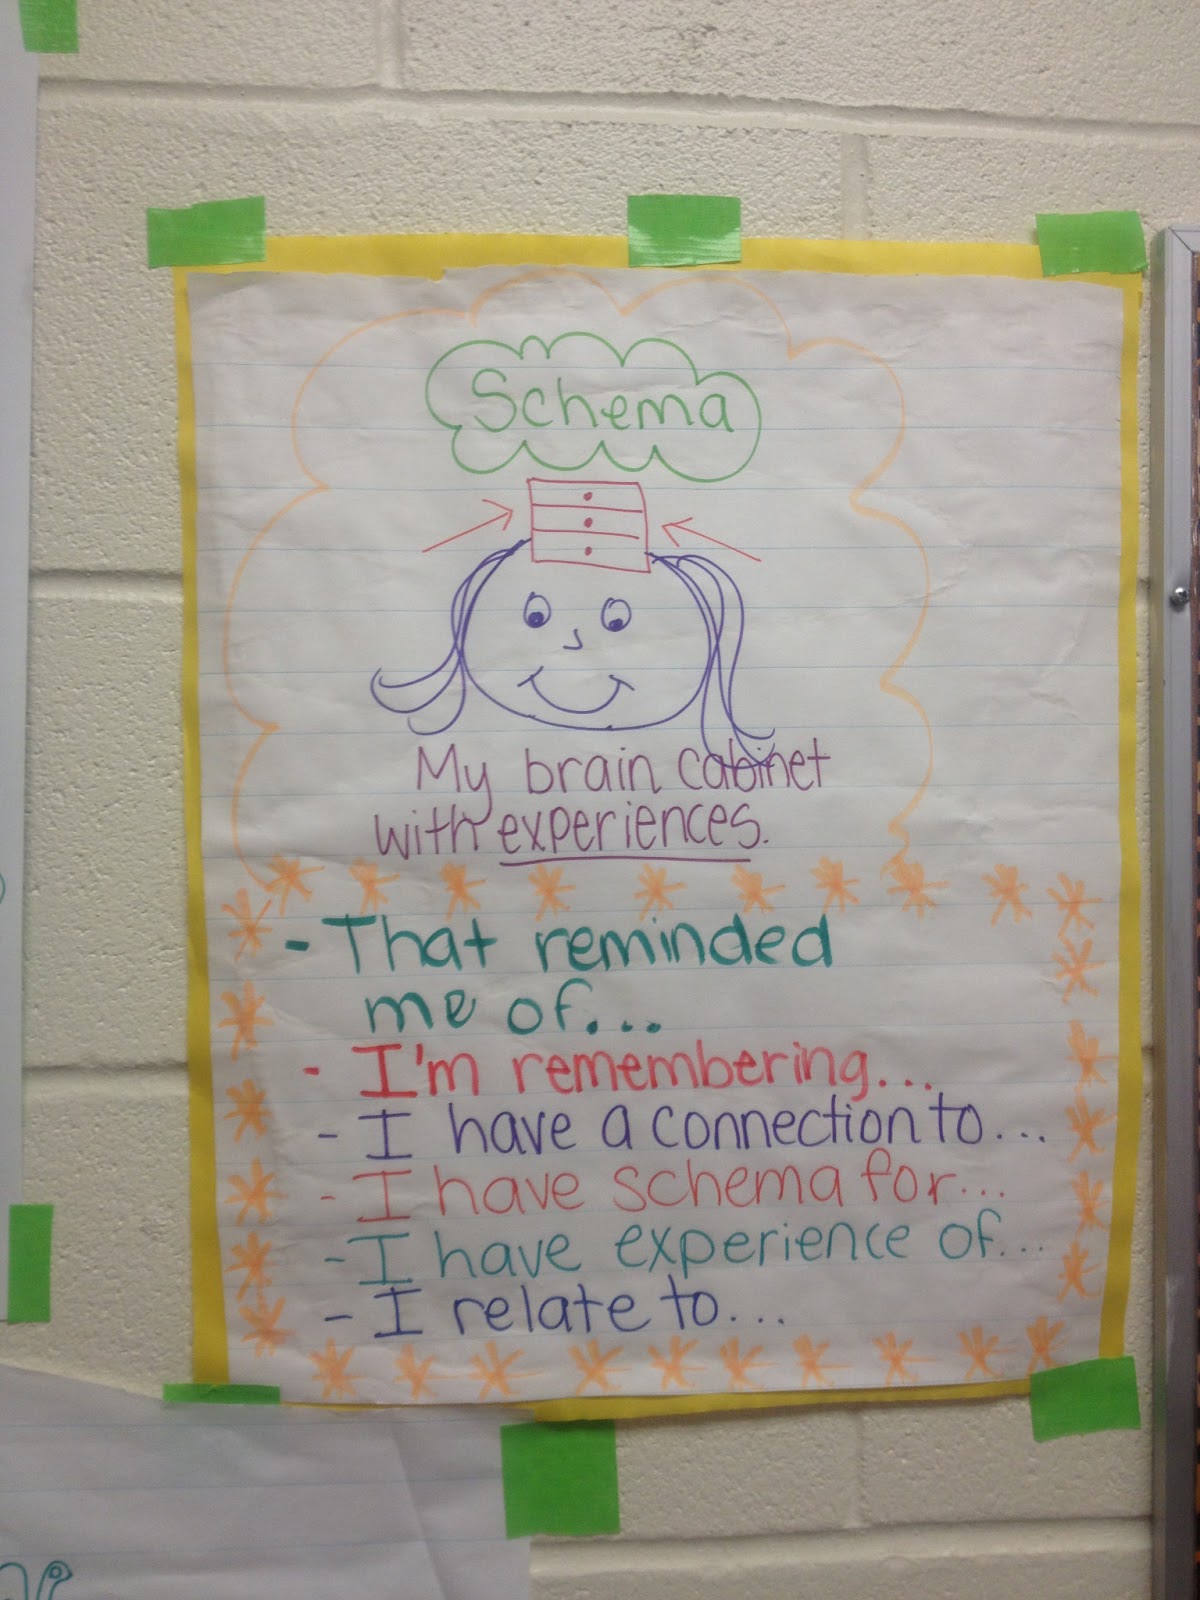 Schema
My brain cabinet
with experiences.
- That reminded
me of...
- I'm remembering...
- I have a connection to...
- I have schema for...
- I have experience of...
- I relate to...